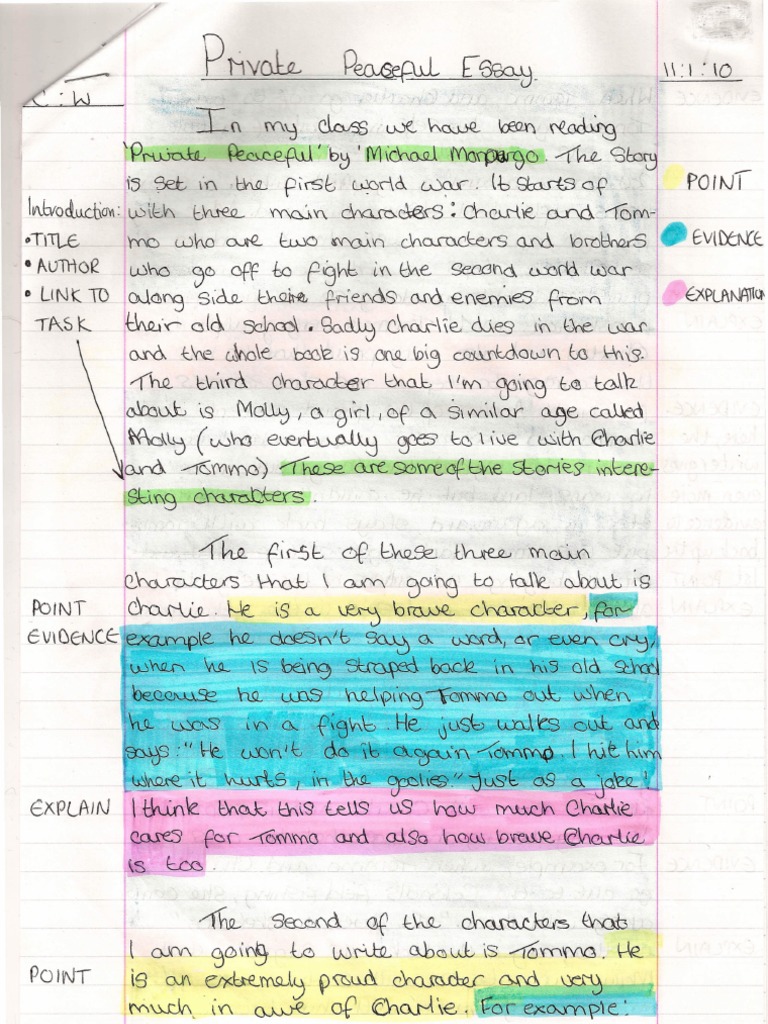 Private Peaceful Essay.
11:1:10
C:W
In my class we have been reading
'Private Peaceful' by 'Michael Morpurgo. The Story
is set in the first world war. It starts of
with three main characters: Charlie and Tom-
mo who are two main characters and brothers
who go off to fight in the second world war
along side there friends and enemies from
their old school. Sadly Charlie dies in the war
and the whole book is one big countdown to this.
The third character that I'm going to talk
about is Molly, a girl, of a similar age called
Molly (who eventually goes to live with Charlie
and Tommo) These are some of the stories intere-
sting charabters.
Introduction:
• TITLE
• AUTHOR
• LINK TO
TASK
POINT
EVIDENCE
EXPLANATION
The first of these three main
characters that I am going to talk about is
charlie. He is a very brave character, for
example he doesn't say a word, or even cry,
when he is being straped back in his old school
because he was helping Tommo out when
he was in a fight. He just walks out and
says: "He won't do it again Tommo. I hit him
where it hurts, in the goolies." Just as a joke!
I think that this tells us how much Charlie
cares for Tommo and also how brave Charlie
is too.
POINT
EVIDENCE
EXPLAIN
The second of the characters that
I am going to write about is Tommo. He
is an extremely proud character and very
much in awe of Charlie. For example:
POINT